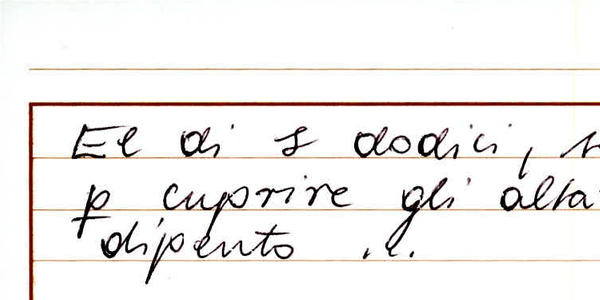 El di s dodici,
p cuprire gli alta
dipento .l.